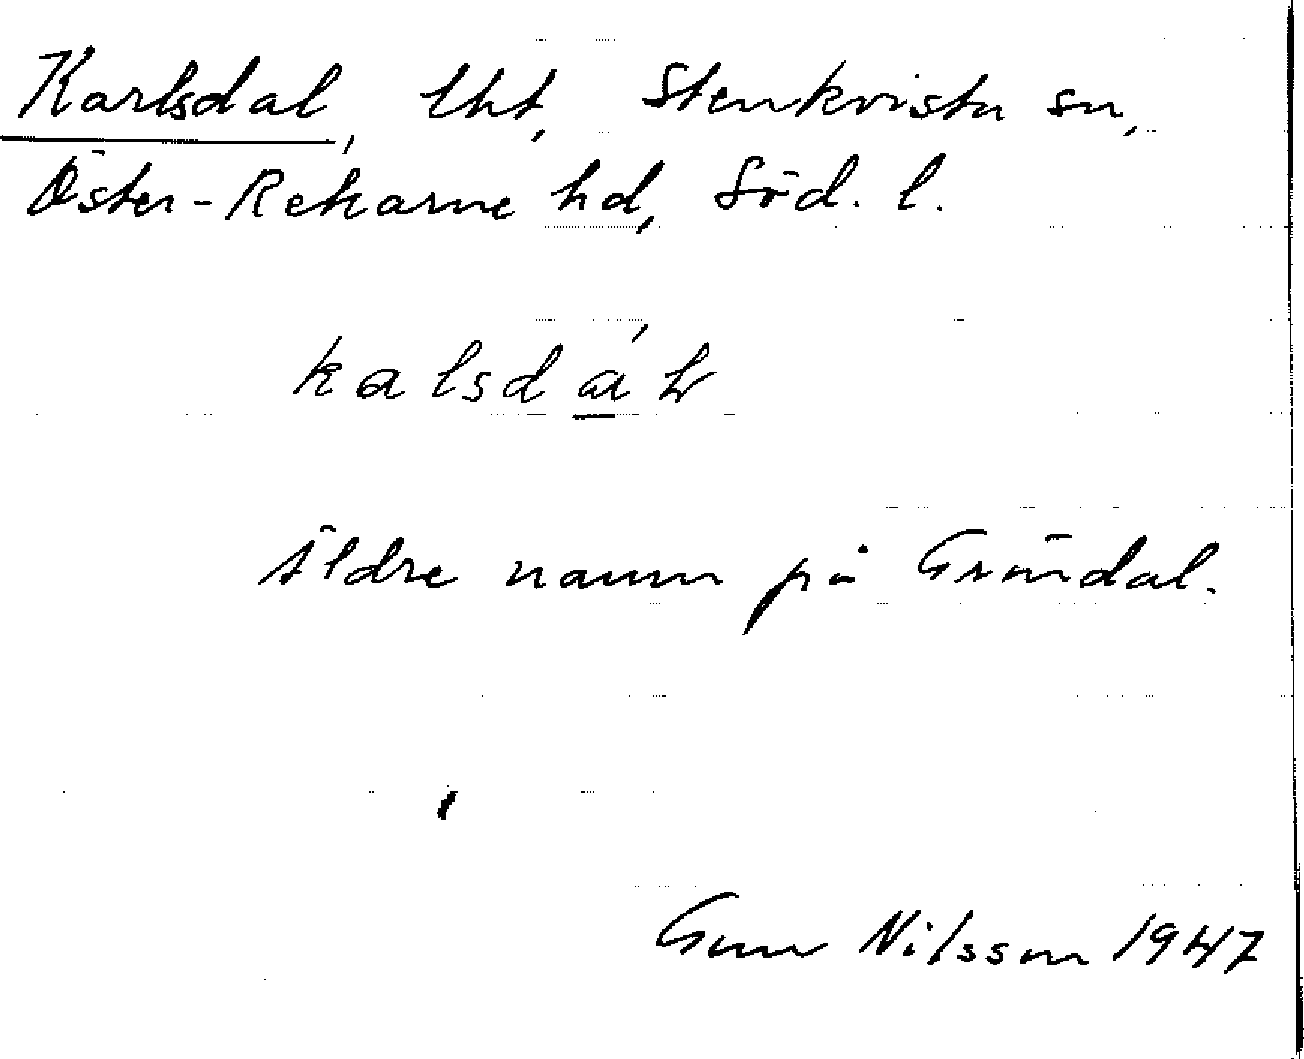 Karlsdal, lht, Stenkvista sn,
Öster-Rekarne hd, Söd. l.
kalsdáɫ
Äldre namn på Gröndal.
Gun Nilsson 1947